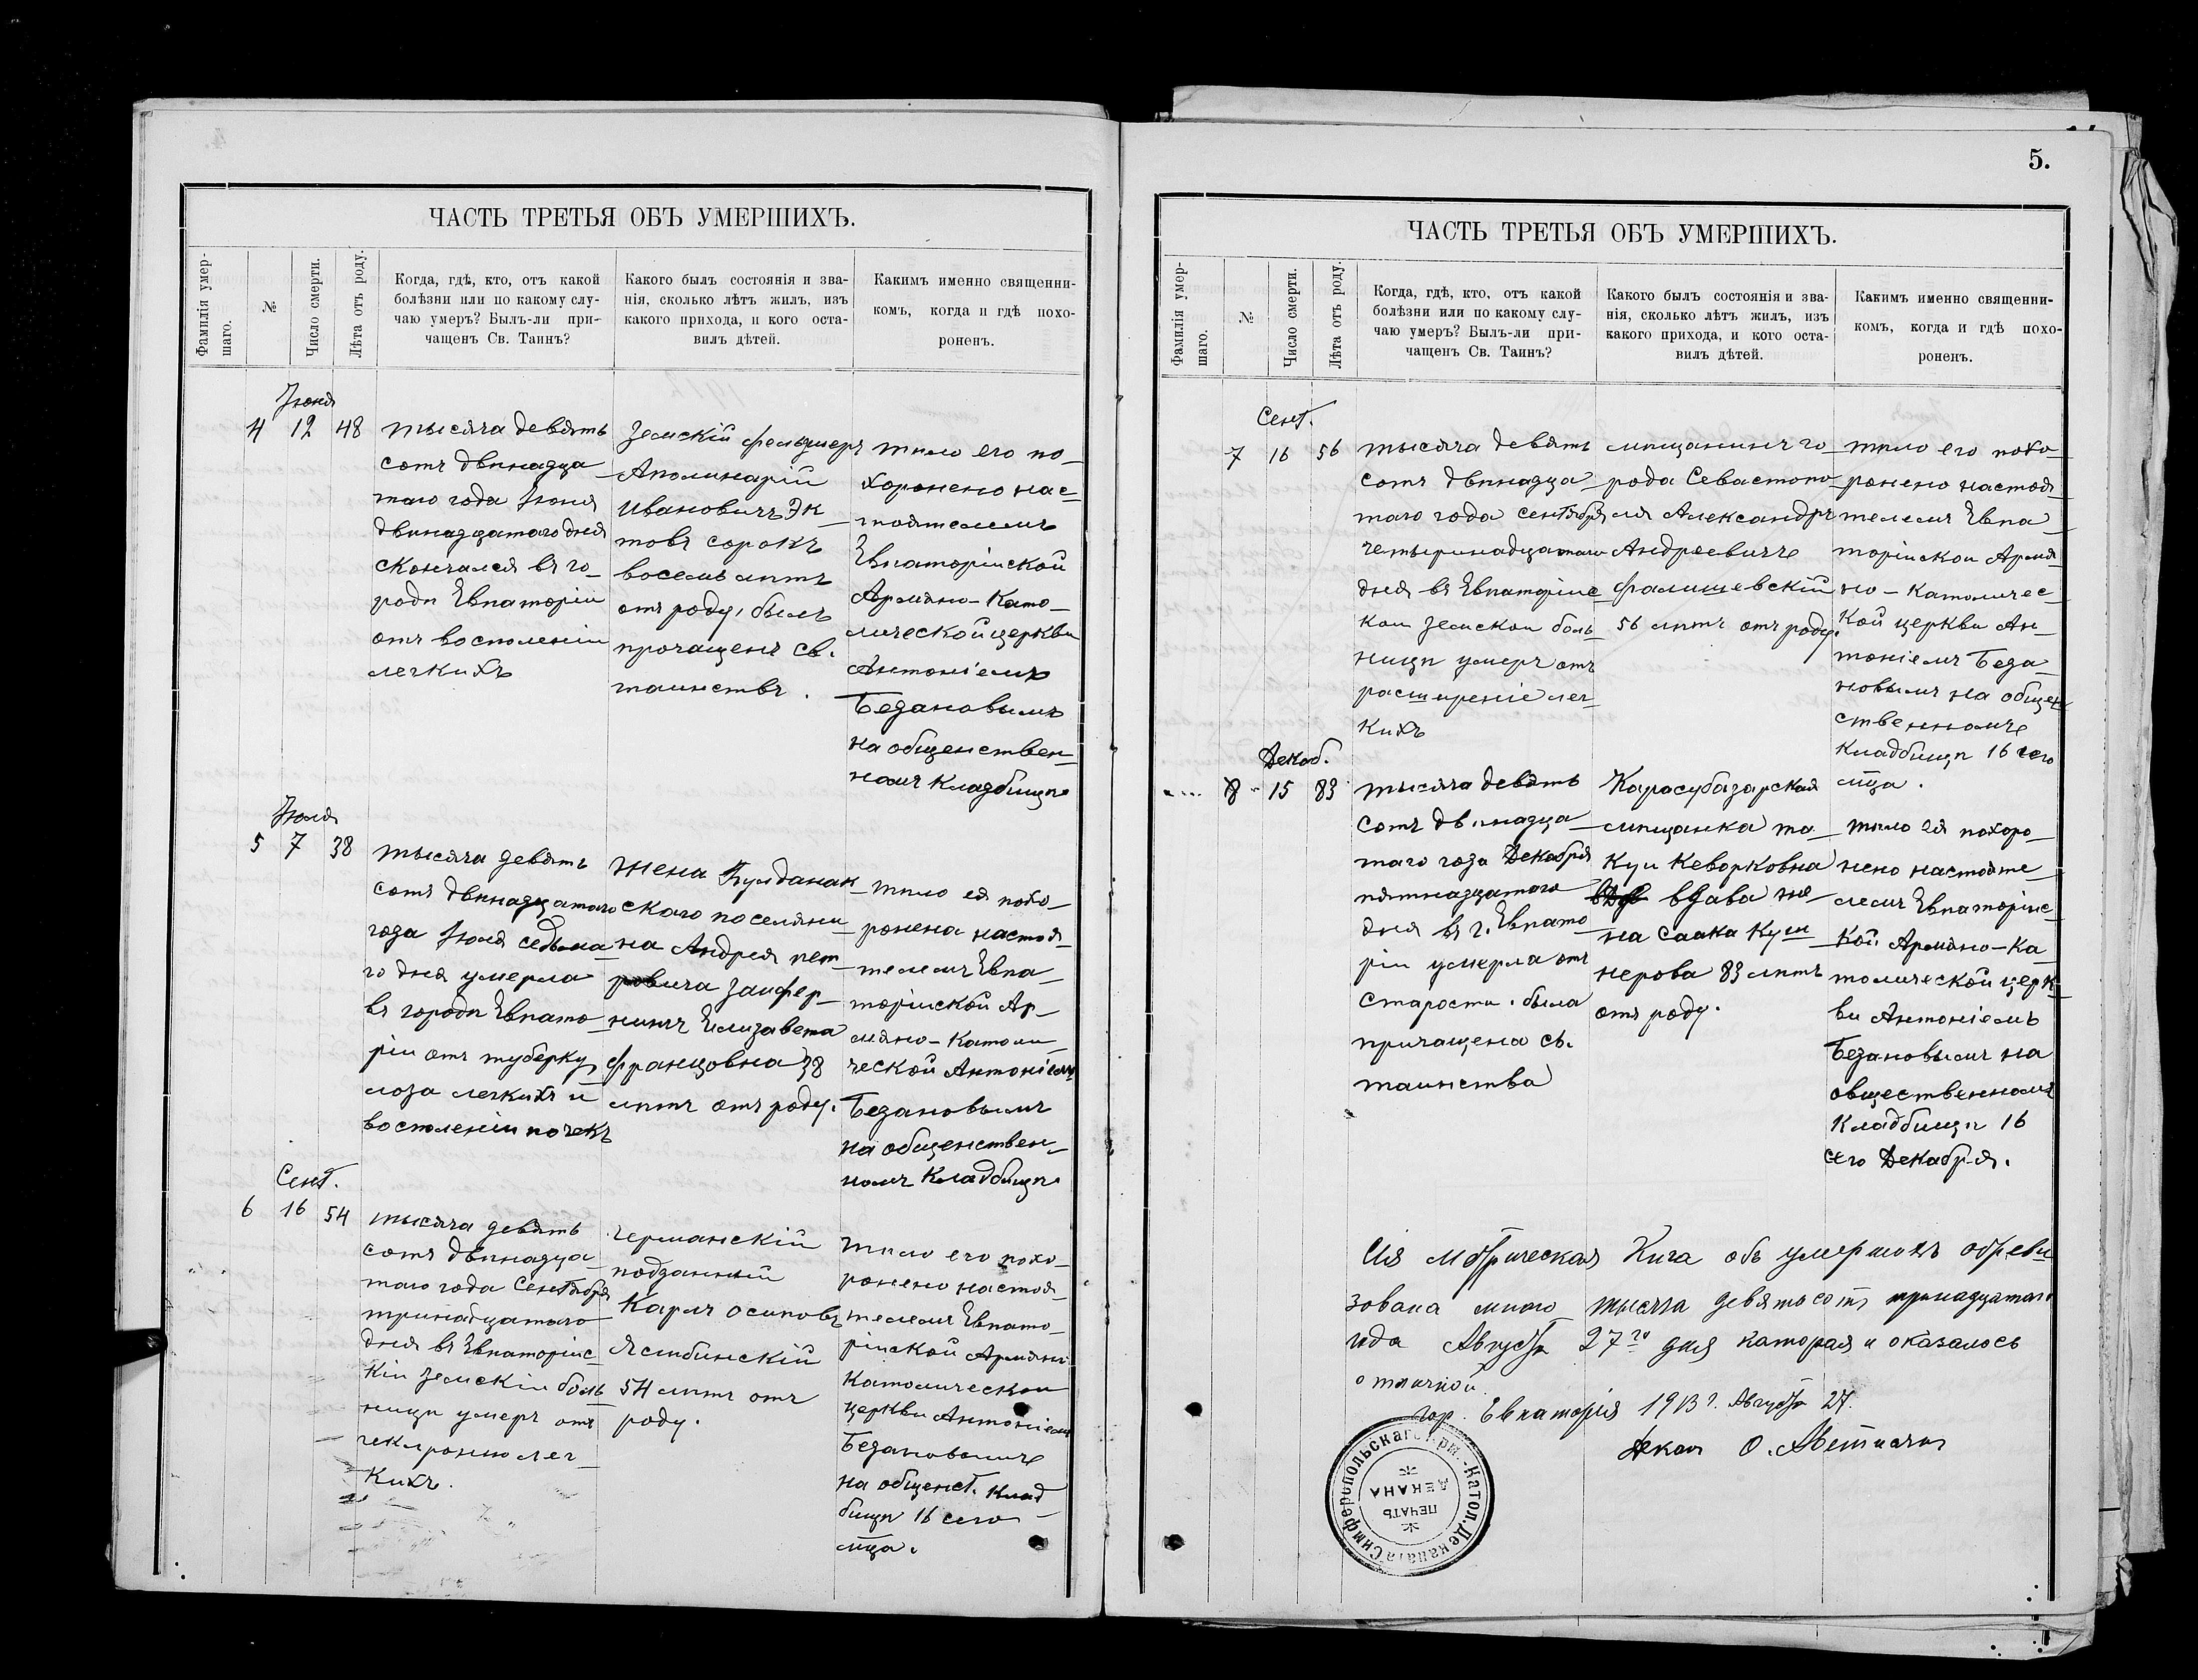 ЧАСТЬ ТРЕТЬЯ ОБЪ УМЕРШИХЪ.
Фамилія умер-
шаго.
№
Число смерти.
Лѣта отъ роду.
Когда, гдѣ, кто, отъ какой
болѣзни или по какому слу-
чаю умеръ? Былъ-ли при-
чащенъ Св. Таинъ?
Какого былъ состоянія и зва-
нія, сколько лѣтъ жилъ, изъ
какого прихода, и кого оста-
вилъ дѣтей.
Какимъ именно священни-
комъ, когда и гдѣ похо-
роненъ.
Іюня
4 12 48
тысяча девять
сотъ двѣнадца
таго года Іюня
двѣнадцатаго дня
скончался въ го-
родѣ Евпаторіи
отъ восполеніи
легкихъ
Земскій фельшеръ
Аполинарій
Ивановичъ Эк-
товъ сорокъ
восемь лѣтъ
отъ роду, былъ
прочащенъ св.
таинствъ.
тѣло его по-
хоронено нас-
тоятелемъ
Евпаторіиской
Армяно-Като-
лической церкви
Антоніемъ
Безановымъ
на общенствен-
номъ Кладбищѣ
Іюля
5 7 38
тысяча девять
сотъ двѣнадцатаго
года Іюля седьма
го дня умерла
въ городѣ Евпато
ріи отъ туберку
лоза легкихъ и
восполеніи почекъ
Жена Булданак
скаго поселяни
на Андрея пет-
ровича Заифер-
нинъ Елизавета
Францовна 38
лѣтъ отъ роду.
тѣло ея похо-
ронена настоя-
телемъ Евпа-
торіиской Ар-
мяно-Католи-
ческой Антоніемъ
Безановымъ
на общенствен-
номъ Кладбищѣ
Сент.
6 16 54
тысяча девять
сотъ двѣнадца-
таго года Сентября
тринадцатого
дня въ Евпаторіис-
кіи земскіи боль
ницѣ умеръ отъ
лег-
кихъ.
германскій
подданный
Карлъ осиповъ
Ястбинскій
54 лѣтъ отъ
роду.
тѣло его похо-
ронено настоя-
телемъ Евпато-
ріиской Армяно
Католическои
церкви Антоніемъ
Безановымъ
на общенст. клад
бищѣ 16 сего
мца.
5.
ЧАСТЬ ТРЕТЬЯ ОБЪ УМЕРШИХЪ.
Фамилія умер-
шаго.
№
Число смерти.
Лѣта отъ роду.
Когда, гдѣ, кто, отъ какой
болѣзни или по какому слу-
чаю умеръ? Былъ-ли при-
чащенъ Св. Таинъ?
Какого былъ состоянія и зва-
нія, сколько лѣтъ жилъ, изъ
какого прихода, и кого оста-
вилъ дѣтей.
Какимъ именно священни-
комъ, когда и гдѣ похо-
роненъ.
Сент.
7 16 56
тысяча девять
сотъ двѣнадца-
таго года сентября
четыринадцатаго
дня въ Евпаторіис-
кои земскои боль-
ницѣ умеръ отъ
расширеніе лег-
кихъ
мѣщанинъ го-
рода Севастопо-
ля Александръ
Андреевичъ
Фалишевскій
56 лѣтъ отъ роду.
тѣло его похо-
ронено настоя-
телемъ Евпа
торіискои Армя
но-Католичес-
кой церкви Ан-
тоніемъ Беза
новымъ на общен
ственномъ
Кладбищѣ 16 сего
мца.
Декаб.
8 15 83
тысяча девять
сотъ двѣнадца-
таго года Декабря
пятнадцатаго
дня въ г. Евпато
ріи умерла отъ
старости. была
причащена св.
таинства
Карасубазарская
мѣщанка та-
Куи Кеворковна
вдава жѣ-
на Саака Куш
нерова 83 лѣтъ
отъ роду.
тѣло ея похоро-
нено настояте-
лемъ Евпаторіис-
кой Армяно-Ка
толической церк-
ви Антоніемъ
Безановымъ на
овщественномъ
Кладбищѣ 16
сего Декабря.
Сія Метрическая Кига объ умершихъ обреви
зована мною тысяча девятьсотъ тринадцатаго
года Августа 27го дня каторая и оказалось
отличной.
гор. Евпаторія 1913 г. Августа 27.
Декан О.
Симферопольскаго Арм.-Катол. Деканата
ПЕЧАТЬ
ДЕКАНА